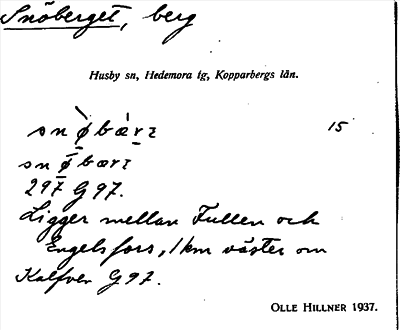 Snöberget, berg
Husby sn, Hedemora tg, Kopparbergs län.
sn ø̀ b æ̀ r ɪ 15
sn ø̄ bærɪ
297 G 97.
Ligger mellan Fullen och
Engelsfors, 1 km väster om
Kalfven G 97.
OLLE HILLNER 1937.